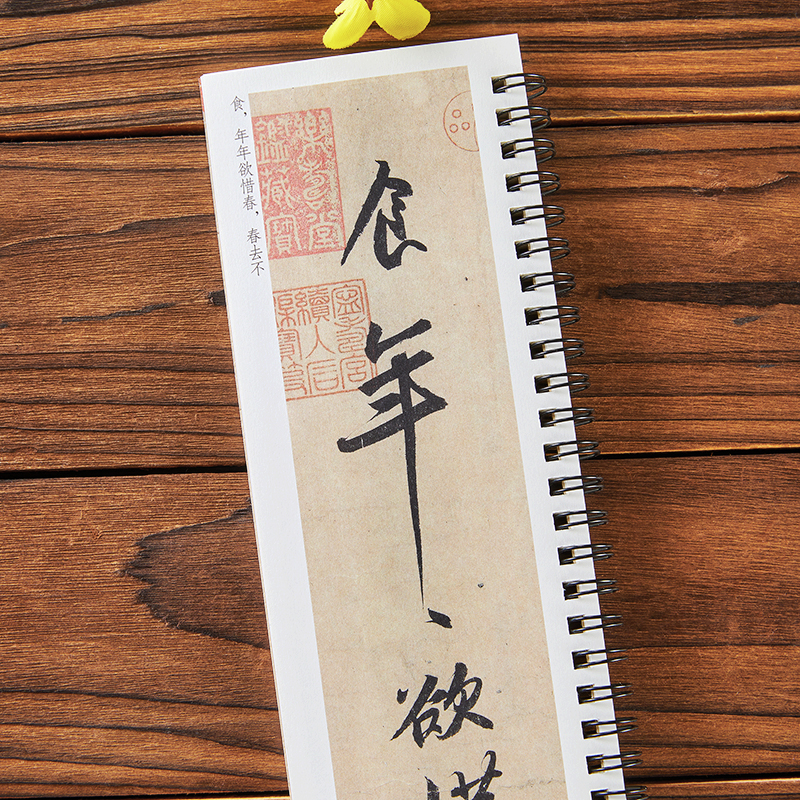 食年、欲惜
食，年年欲惜春，春去不